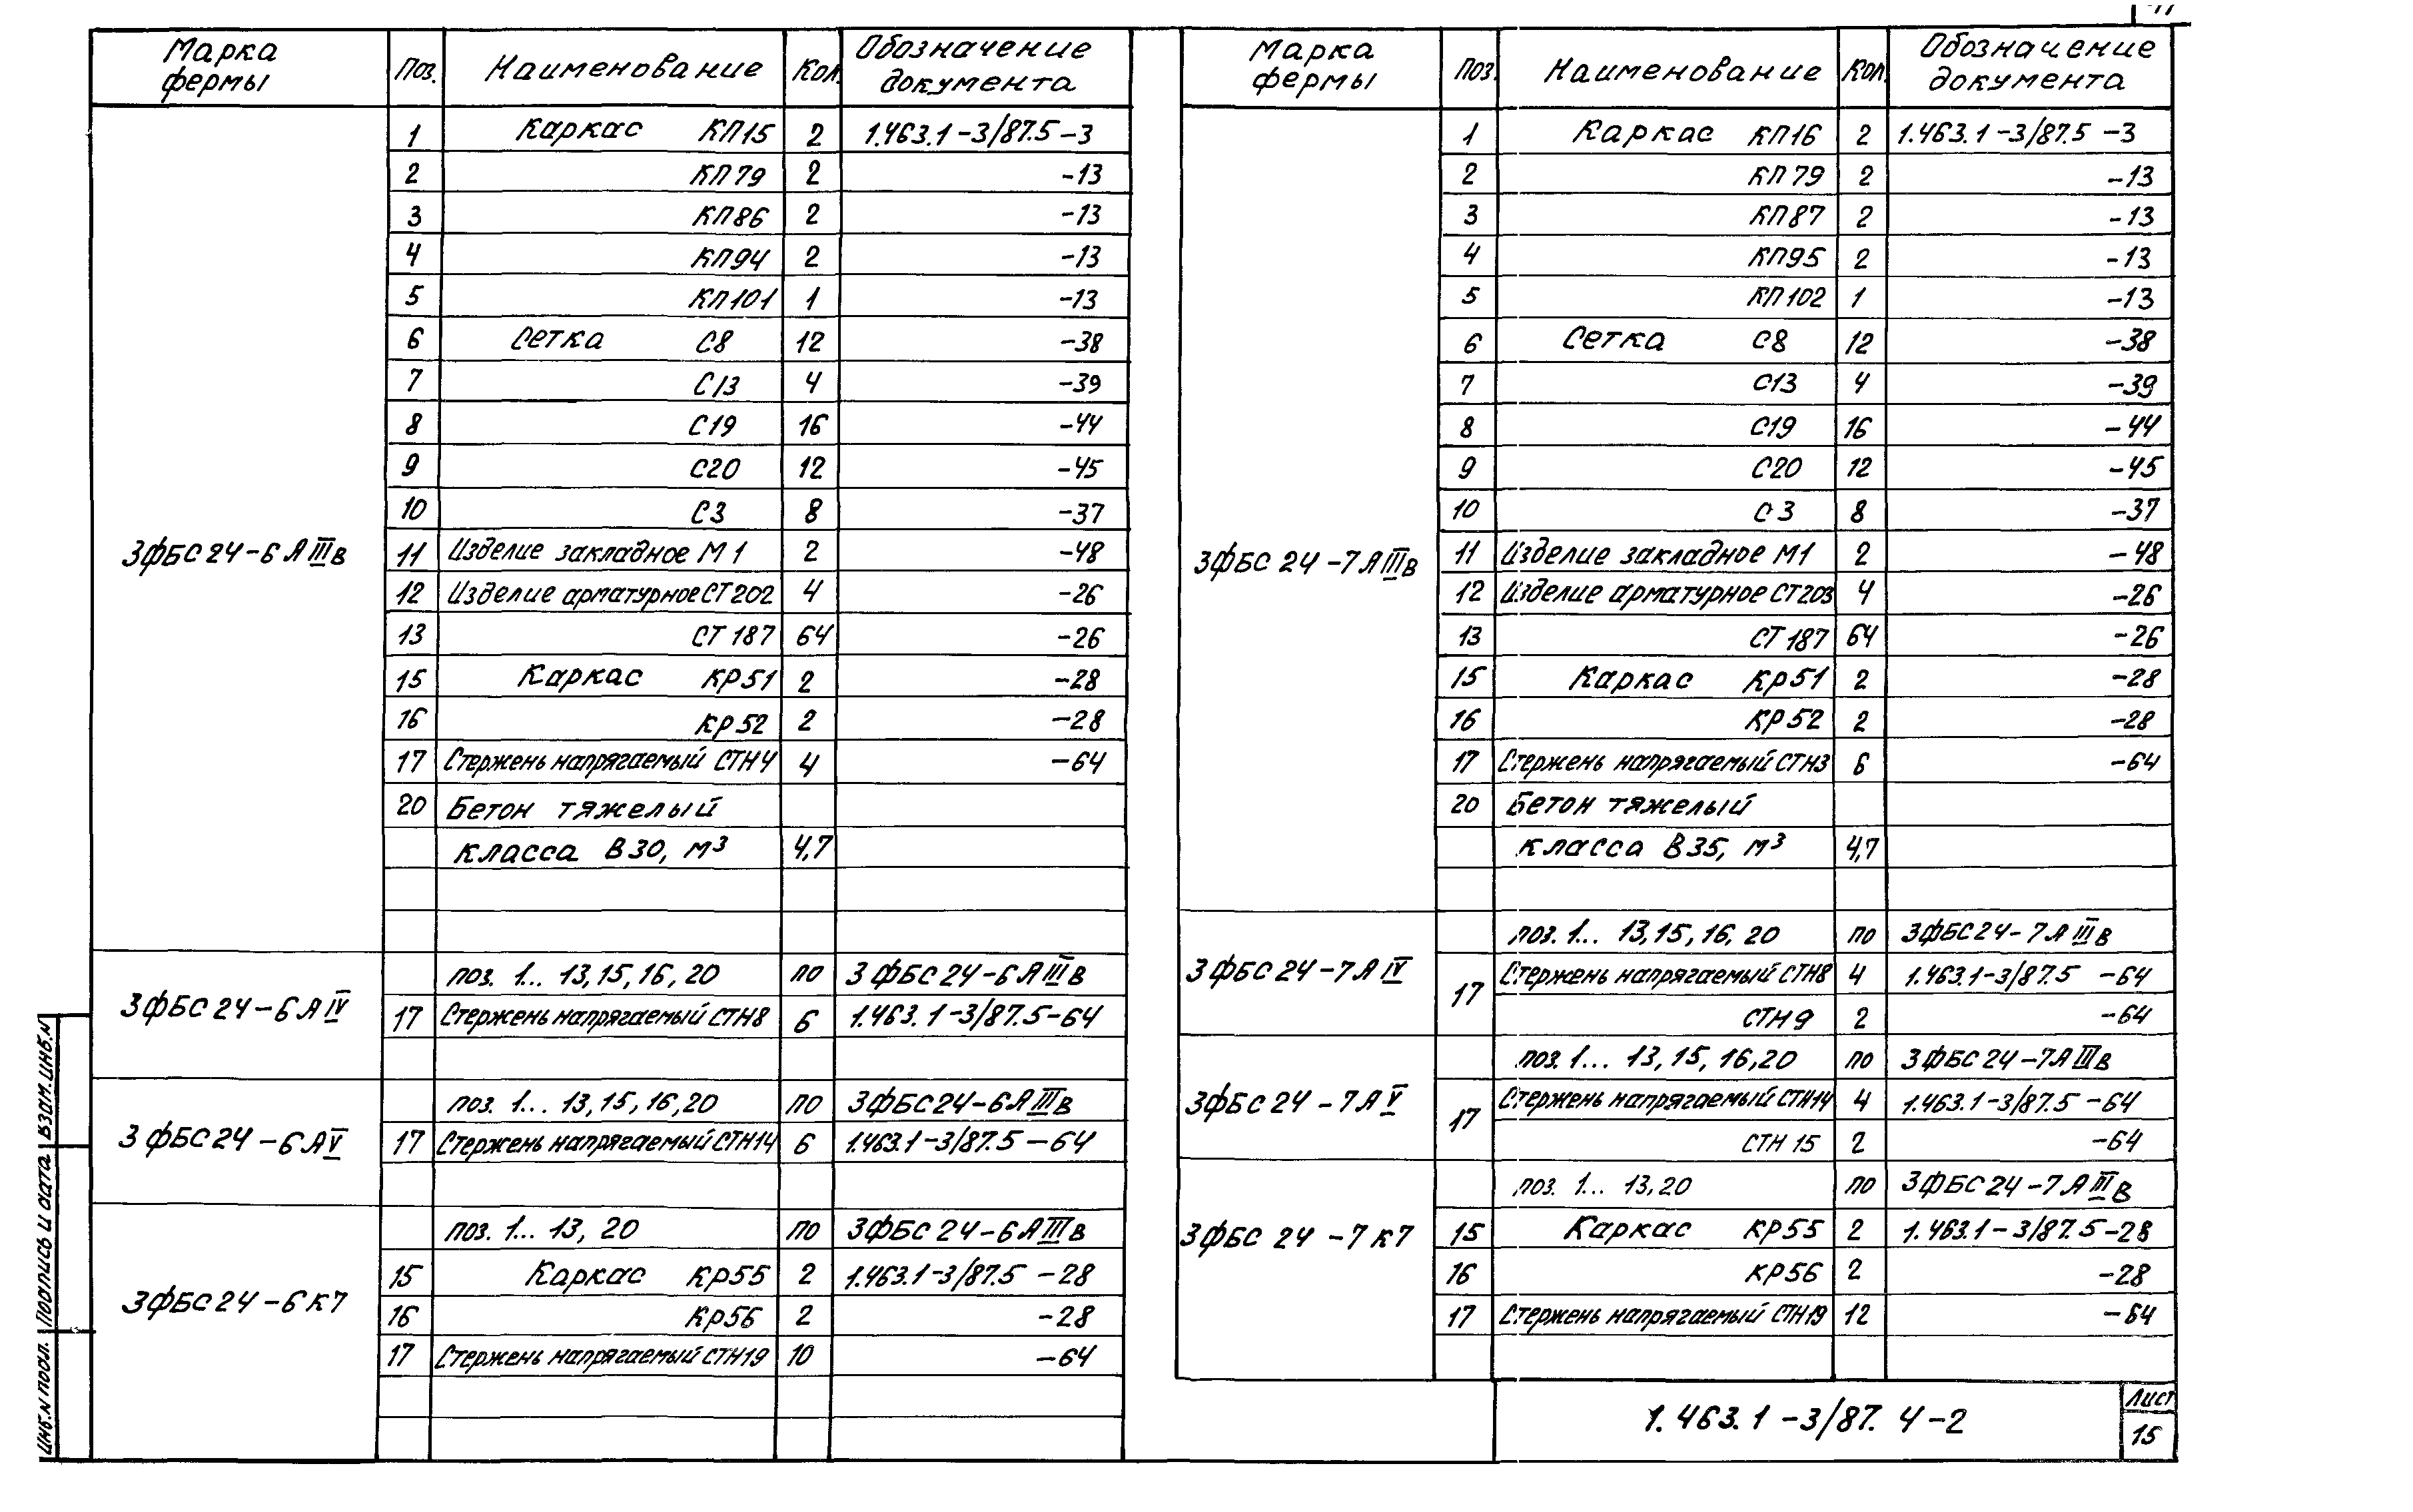 Марка фермы Поз. Наименование Кол. Обозначение документа
1 Каркас КП15 2 1.463.1-3/87.5-3
2 КП79 2 -13
3 КП86 2 -13
4 КП94 2 -13
5 КП101 1 -13
6 Сетка С8 12 -38
7 С13 4 -39
8 С19 16 -44
9 С20 12 -45
10 С3 8 -37
3ФБС24-6АIIIв 11 Изделие закладное М1 2 -48
12 Изделие арматурное СТ202 4 -26
13 СТ187 64 -26
15 Каркас КР51 2 -28
16 КР52 2 -28
17 Стержень напрягаемый СТН4 4 -64
20 Бетон тяжелый
класса В30, м³ 4,7
поз. 1... 13,15,16,20 по 3ФБС24-6АIIIв
3ФБС24-6АIV 17 Стержень напрягаемый СТН8 6 1.463.1-3/87.5-64
поз. 1... 13,15,16,20 по 3ФБС24-6АIIIв
3ФБС24-6АV 17 Стержень напрягаемый СТН14 6 1.463.1-3/87.5-64
поз. 1... 13, 20 по 3ФБС24-6АIIIв
15 Каркас КР55 2 1.463.1-3/87.5-28
3ФБС24-6К7 16 КР56 2 -28
17 Стержень напрягаемый СТН19 10 -64
Марка фермы Поз. Наименование Кол. Обозначение документа
1 Каркас КП16 2 1.463.1-3/87.5-3
2 КП79 2 -13
3 КП87 2 -13
4 КП95 2 -13
5 КП102 1 -13
6 Сетка С8 12 -38
7 С13 4 -39
8 С19 16 -44
9 С20 12 -45
10 С3 8 -37
3ФБС24-7АIIIв 11 Изделие закладное М1 2 -48
12 Изделие арматурное СТ203 4 -26
13 СТ187 64 -26
15 Каркас КР51 2 -28
16 КР52 2 -28
17 Стержень напрягаемый СТН3 6 -64
20 Бетон тяжелый
класса В35, м³ 4,7
поз. 1... 13,15,16,20 по 3ФБС24-7АIIIв
3ФБС24-7АIV 17 Стержень напрягаемый СТН8 4 1.463.1-3/87.5-64
СТН9 2 -64
поз. 1... 13,15,16,20 по 3ФБС24-7АIIIв
3ФБС24-7АV 17 Стержень напрягаемый СТН14 4 1.463.1-3/87.5-64
СТН15 2 -64
поз. 1... 13,20 по 3ФБС24-7АIIIв
3ФБС24-7К7 15 Каркас КР55 2 1.463.1-3/87.5-28
16 КР56 2 -28
17 Стержень напрягаемый СТН19 12 -64
1.463.1-3/87.4-2
Лист
15
Инв.№ подл. Подпись и дата Взам.инв.№